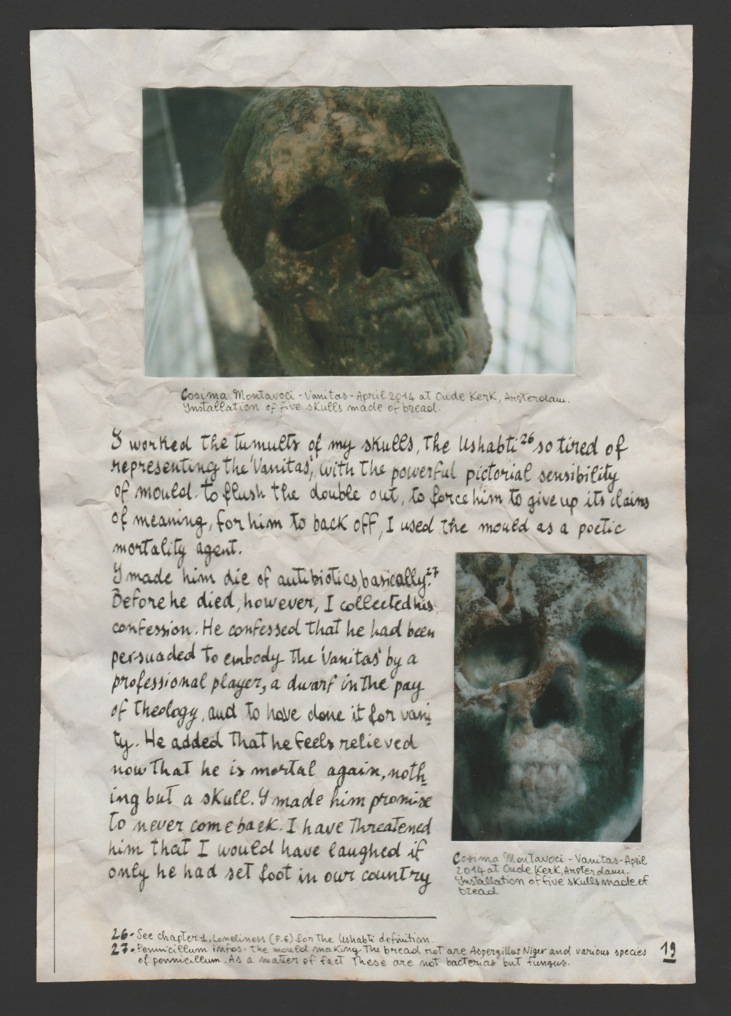 Cosima Montavoci - Vanitas - April 2014 at Oude Kerk, Amsterdam.
Installation of five skulls made of bread.
I worked the tumults of my skulls, the Ushabti²⁶ so tired of
representing the 'Vanitas', with the powerful pictorial sensibility
of mould. to flush the double out, to force him to give up its claims
of meaning, for him to back off, I used the mould as a poetic
mortality agent.
I made him die of antibiotics, basically.²⁷
Before he died, however, I collected his
confession. He confessed that he had been
persuaded to embody the 'Vanitas' by a
professional player, a dwarf in the pay
of theology, and to have done it for vani
ty. He added that he feels relieved
now that he is mortal again, noth
ing but a skull. I made him promise
to never come back. I have threatened
him that I would have laughed if
only he had set foot in our country
Cosima Montavoci - Vanitas - April
2014 at Oude Kerk, Amsterdam.
Installation of five skulls made of
bread
26- See chapter 1, Loneliness (P.6) for the Ushabti definition.
27- Pennicillum infos: the mould making the bread rot are Aspergillus Niger and various species
of pennicillum. As a matter of fact these are not bacterias but fungus.
19